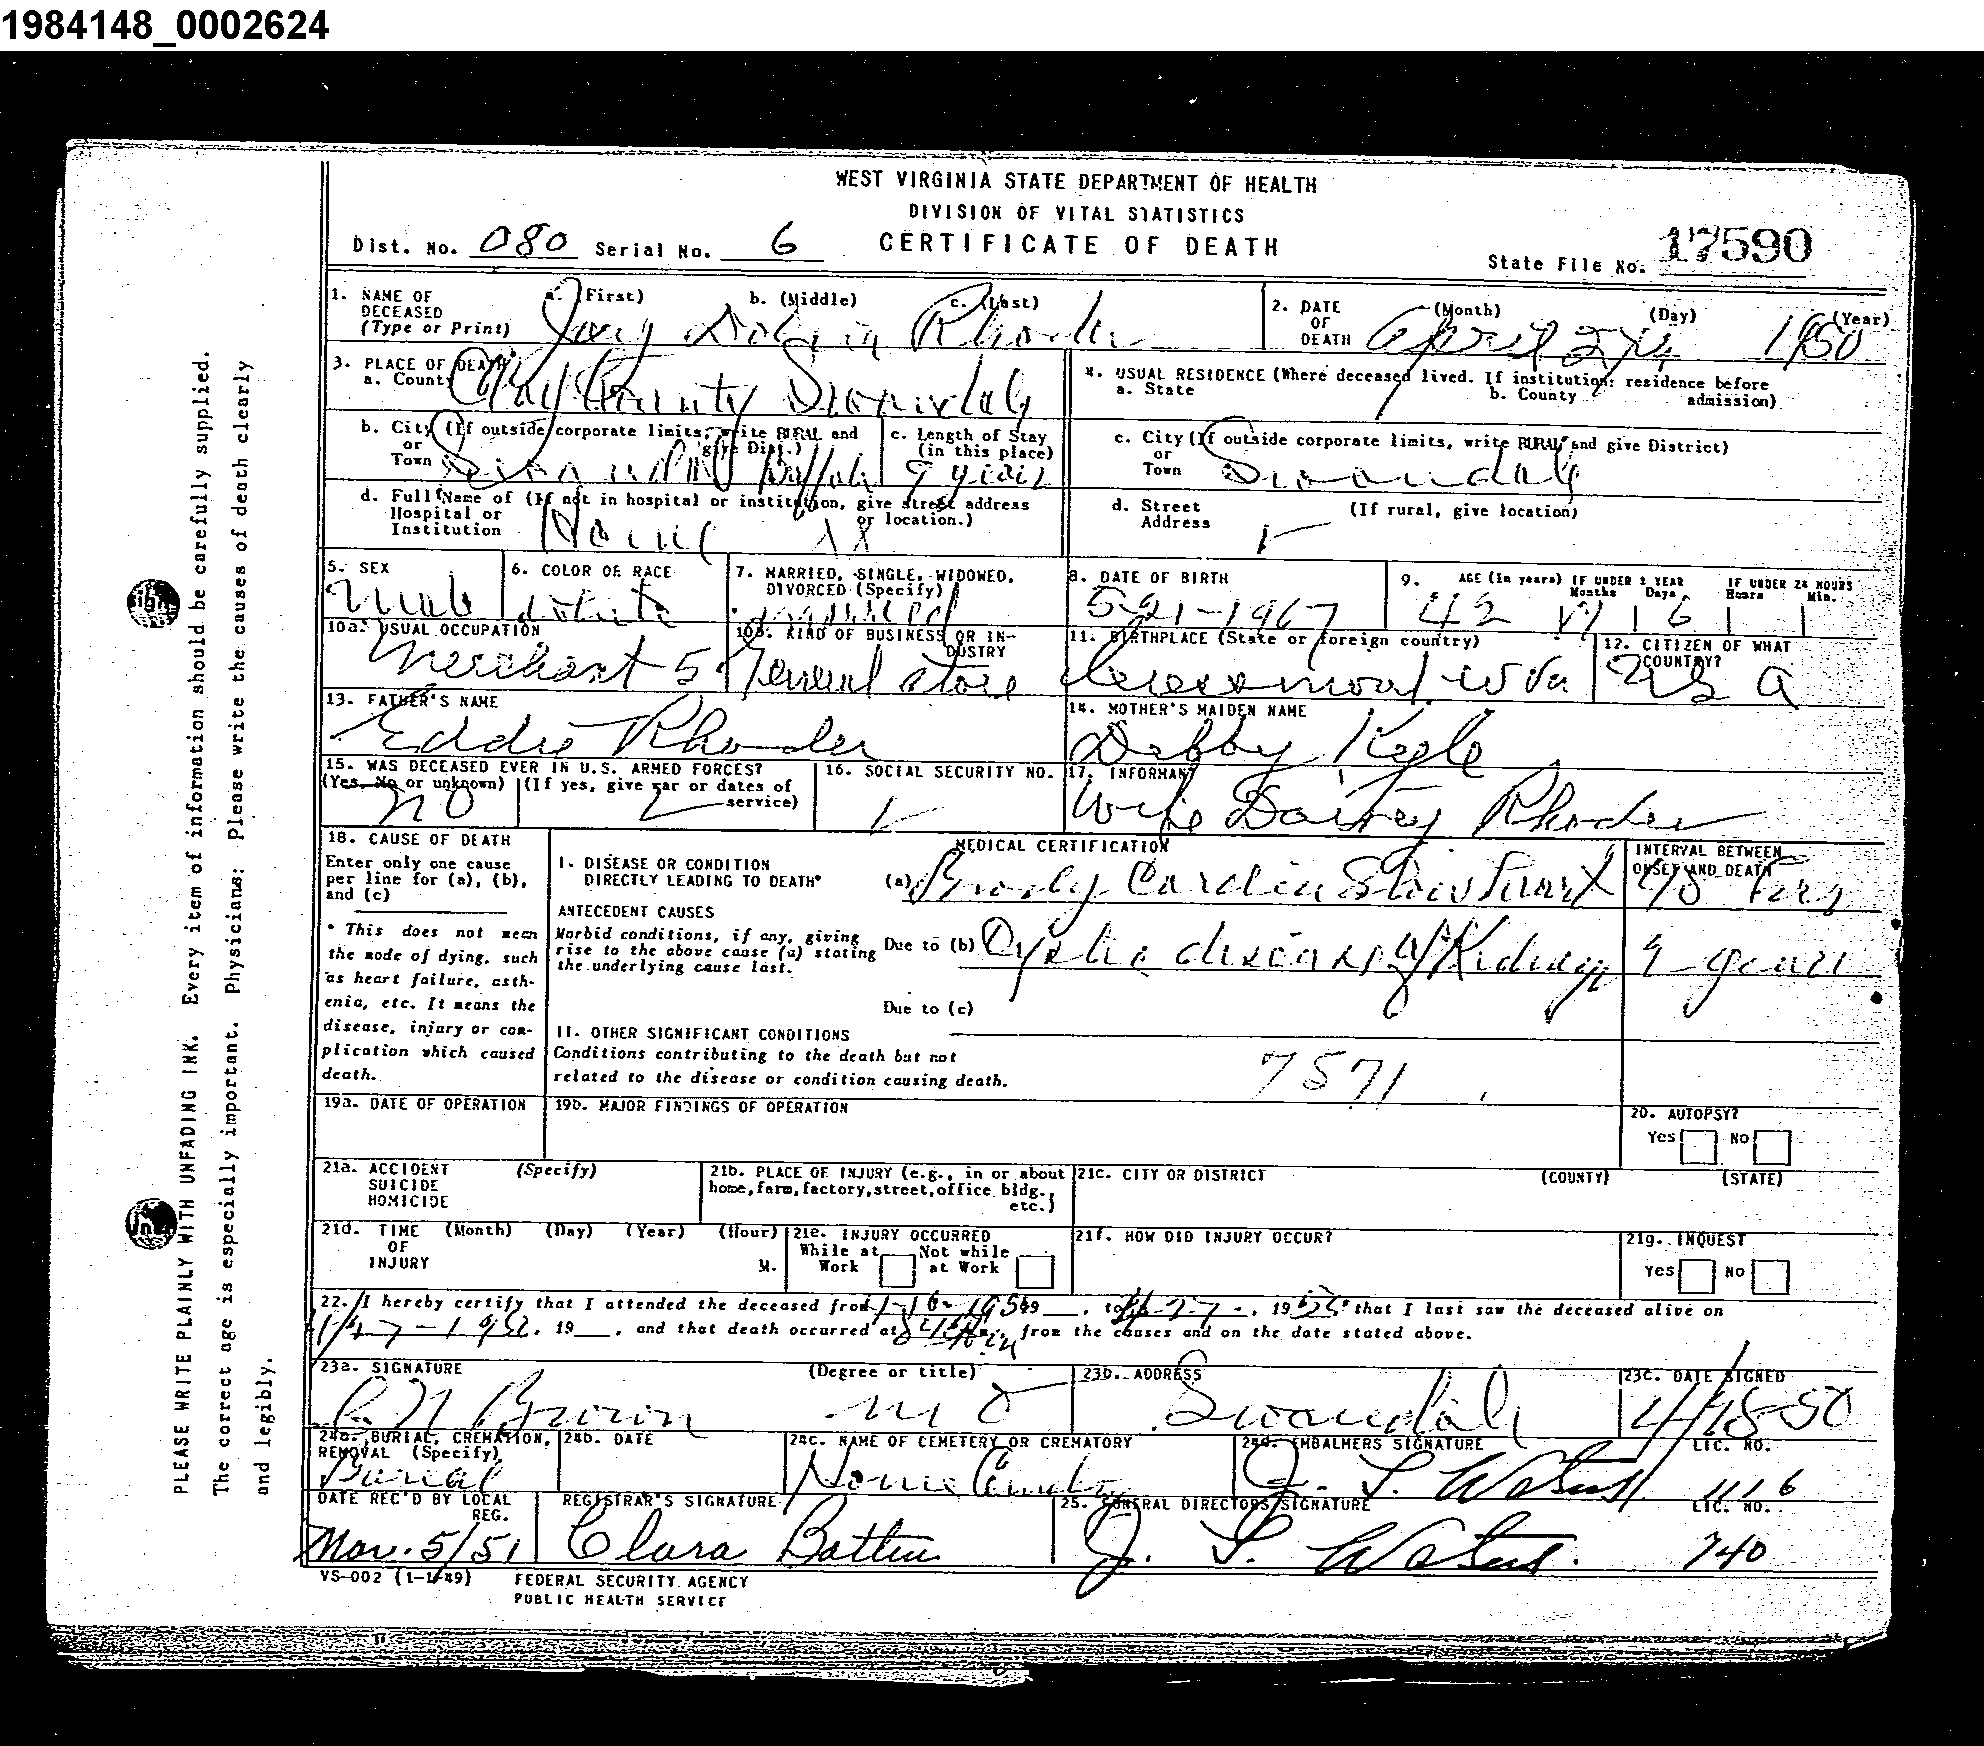 1984148_0002624
WEST VIRGINIA STATE DEPARTMENT OF HEALTH
DIVISION OF VITAL STATISTICS
CERTIFICATE OF DEATH
Dist. No. 080 Serial No. 6
State File No. 17590
1. NAME OF DECEASED (Type or Print) a. (First) b. (Middle) c. (Last)
2. DATE OF DEATH (Month) (Day) (Year)
April 1950
3. PLACE OF DEATH a. County
Clay County
4. USUAL RESIDENCE (Where deceased lived. If institution: residence before admission)
a. State b. County
b. City (If outside corporate limits, write RURAL and give Dist.) or Town
c. Length of Stay (in this place)
9 years
c. City (If outside corporate limits, write RURAL and give District) or Town
Swandale
d. Full Name of (If not in hospital or institution, give street address or location.) Hospital or Institution
Home XX
d. Street Address (If rural, give location)
5. SEX
Male
6. COLOR OR RACE
White
7. MARRIED, SINGLE, WIDOWED, DIVORCED (Specify)
married
8. DATE OF BIRTH
5-21-1967
9. AGE (In years) IF UNDER 1 YEAR Months Days IF UNDER 24 HOURS Hours Min.
42
10a. USUAL OCCUPATION
Merchant
10b. KIND OF BUSINESS OR INDUSTRY
General store
11. BIRTHPLACE (State or foreign country)
W Va
12. CITIZEN OF WHAT COUNTRY?
U S A
13. FATHER'S NAME
Eddie Rhodes
14. MOTHER'S MAIDEN NAME
Debby
15. WAS DECEASED EVER IN U.S. ARMED FORCES?
(Yes, No or unknown) (If yes, give war or dates of service)
no
16. SOCIAL SECURITY NO.
17. INFORMANT
Wife Rhodes
18. CAUSE OF DEATH
Enter only one cause per line for (a), (b), and (c)
* This does not mean the mode of dying, such as heart failure, asthenia, etc. It means the disease, injury or complication which caused death.
MEDICAL CERTIFICATION
INTERVAL BETWEEN ONSET AND DEATH
I. DISEASE OR CONDITION DIRECTLY LEADING TO DEATH*
(a)
ANTECEDENT CAUSES
Morbid conditions, if any, giving rise to the above cause (a) stating the underlying cause last.
Due to (b) Cystic disease of Kidney 9 years
Due to (c)
II. OTHER SIGNIFICANT CONDITIONS
Conditions contributing to the death but not related to the disease or condition causing death.
7571
19a. DATE OF OPERATION
19b. MAJOR FINDINGS OF OPERATION
20. AUTOPSY?
Yes No
21a. ACCIDENT SUICIDE HOMICIDE (Specify)
21b. PLACE OF INJURY (e.g., in or about home, farm, factory, street, office bldg., etc.)
21c. CITY OR DISTRICT (COUNTY) (STATE)
21d. TIME OF INJURY (Month) (Day) (Year) (Hour) M.
21e. INJURY OCCURRED
While at Work Not while at Work
21f. HOW DID INJURY OCCUR?
21g. INQUEST
Yes No
22. I hereby certify that I attended the deceased from , to , 19 that I last saw the deceased alive on
, 19 , and that death occurred at from the causes and on the date stated above.
23a. SIGNATURE (Degree or title)
Brown M D
23b. ADDRESS
Swandale
23c. DATE SIGNED
24a. BURIAL, CREMATION, REMOVAL (Specify)
Burial
24b. DATE
24c. NAME OF CEMETERY OR CREMATORY
Home
24d. EMBALMERS SIGNATURE LIC. NO.
1116
DATE REC'D BY LOCAL REG.
5/51
REGISTRAR'S SIGNATURE
Clara
25. FUNERAL DIRECTORS SIGNATURE LIC. NO.
740
VS-002 (1-1-49) FEDERAL SECURITY AGENCY
PUBLIC HEALTH SERVICE
PLEASE WRITE PLAINLY WITH UNFADING INK. Every item of information should be carefully supplied.
The correct age is especially important. Physicians: Please write the causes of death clearly
and legibly.